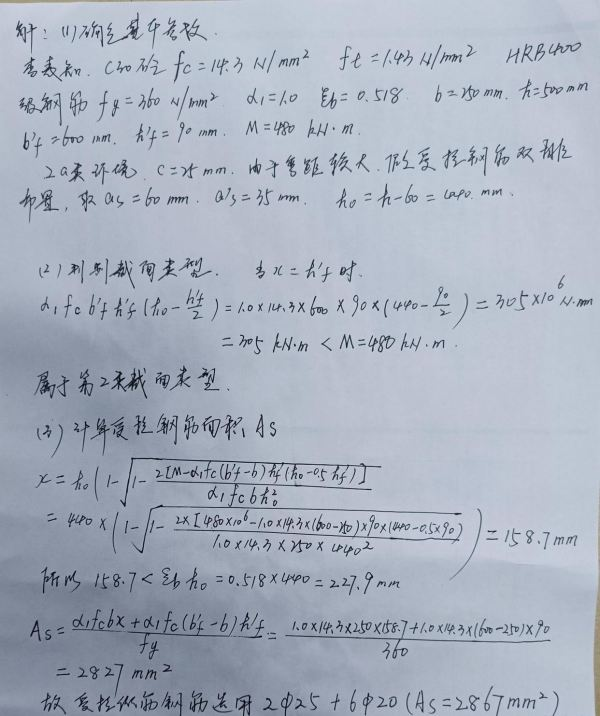 解：(1)确定基本参数.
查表知. C30砼 fc=14.3 N/mm² ft=1.43 N/mm² HRB400
级钢筋 fy=360 N/mm². α1=1.0 ξb=0.518. b=250 mm. h=500 mm
b'f=600 mm. h'f=90 mm. M=480 kN·m.
2a类环境. C=25 mm. 由于弯距较大. 假定受拉钢筋双排
布置, 取 as=60 mm. a's=35 mm. h0=h-60=440. mm.
(2)判别截面类型. 当x=h'f时.
α1fcb'fh'f(h0-h'f/2)=1.0×14.3×600×90×(440-90/2)=305×10⁶ N·mm
=305 kN·m < M=480 kN·m.
属于第2类截面类型.
(3)计算受拉钢筋面积As
x=h0(1-√(1-2[M-α1fc(b'f-b)h'f(h0-0.5h'f)]/α1fcbh0²))
=440×(1-√(1-2×[480×10⁶-1.0×14.3×(600-250)×90×(440-0.5×90)/1.0×14.3×250×440²))=158.7mm
所以 158.7<ξbh0=0.518×440=227.9 mm
As=α1fcbx+α1fc(b'f-b)h'f/fy=1.0×14.3×250×158.7+1.0×14.3×(600-250)×90/360
=2827 mm²
故受拉纵筋钢筋选用2Φ25+6Φ20(As=2867mm²)